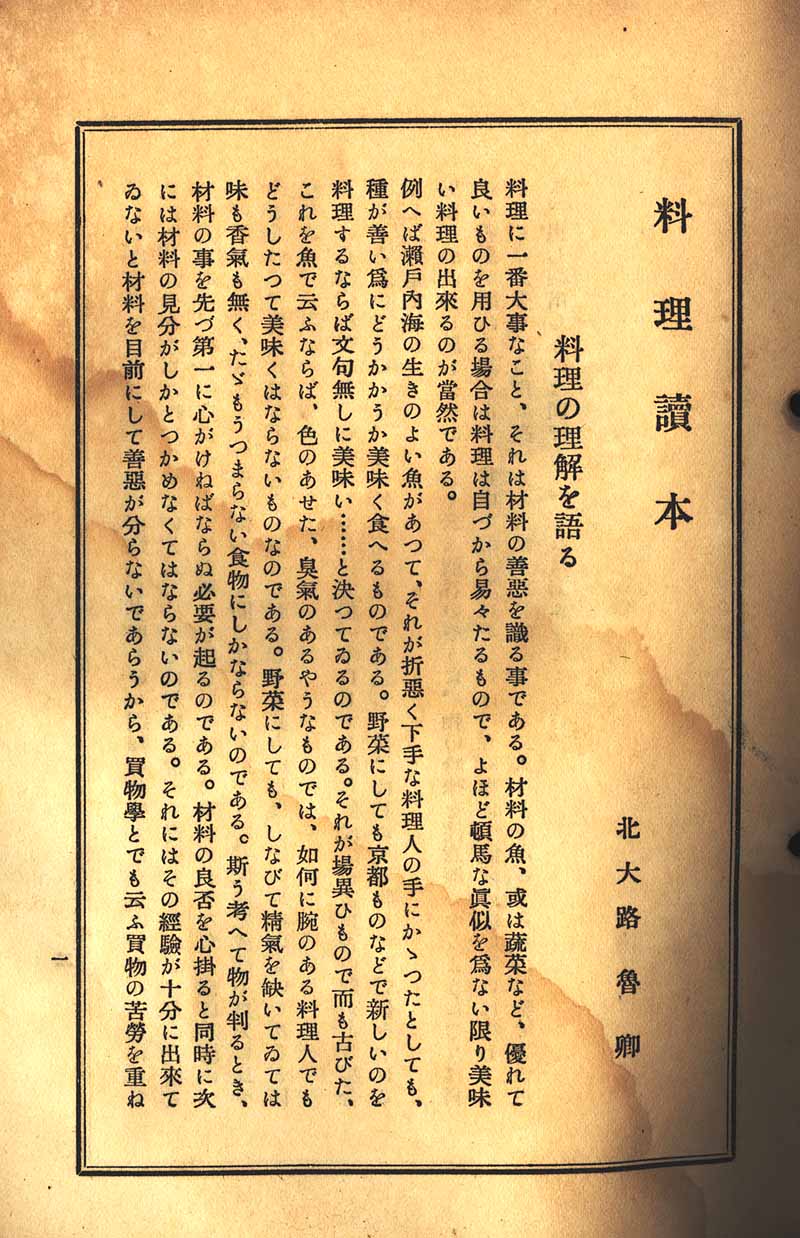 料理讀本
北大路魯卿
料理の理解を語る
料理に一番大事なこと、それは材料の善惡を識る事である。材料の魚、或は蔬菜など、優れて
良いものを用ひる場合は料理は自づから易々たるもので、よほど頓馬な眞似を爲ない限り美味
い料理の出來るのが當然である。
例へば瀨戶內海の生きのよい魚があつて、それが折惡く下手な料理人の手にかゝつたとしても、
種が善い爲にどうかかうか美味く食へるものである。野菜にしても京都ものなどで新しいのを
料理するならば文句無しに美味い……と決つてゐるのである。それが場異ひもので而も古びた、
これを魚で云ふならば、色のあせた、臭氣のあるやうなものでは、如何に腕のある料理人でも
どうしたつて美味くはならないものなのである。野菜にしても、しなびて精氣を缺いてゐては
味も香氣も無く、たゞもうつまらない食物にしかならないのである。斯う考へて物が判るとき、
材料の事を先づ第一に心がけねばならぬ必要が起るのである。材料の良否を心掛ると同時に次
には材料の見分がしかとつかめなくてはならないのである。それにはその經驗が十分に出來て
ゐないと材料を目前にして善惡が分らないであらうから、買物學とでも云ふ買物の苦勞を重ね
一